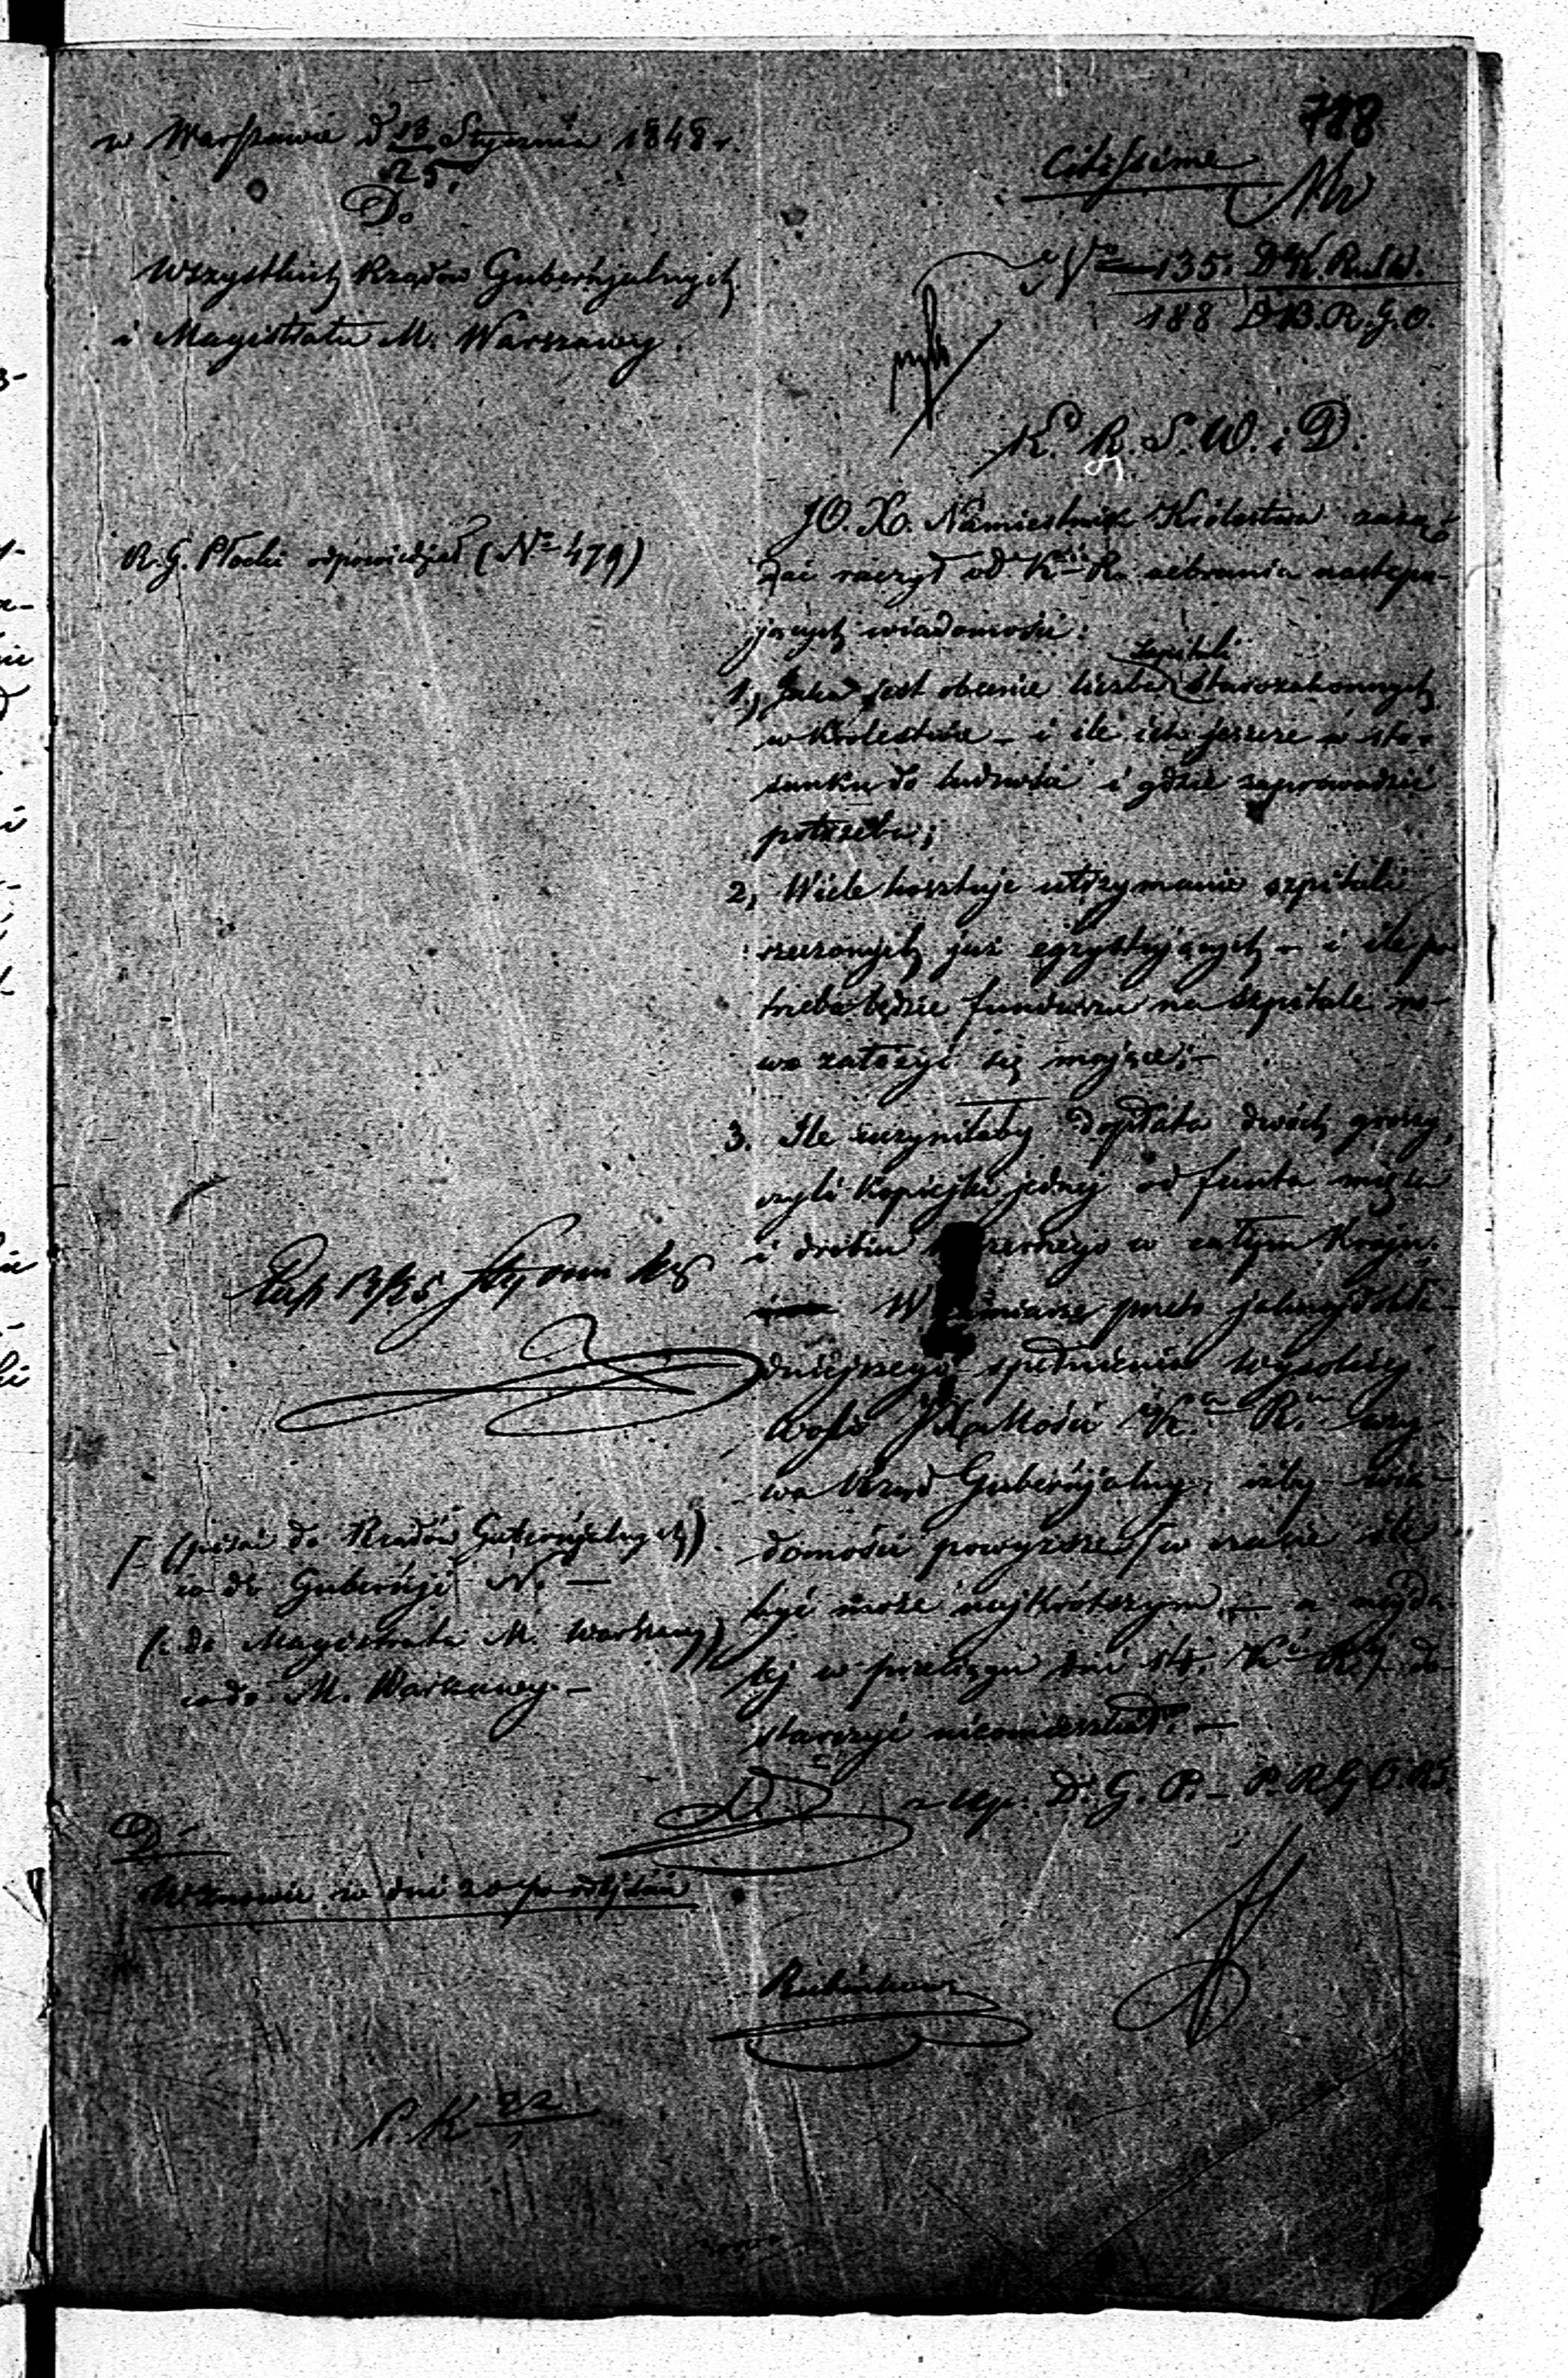 788
w Warszawie d 13/25 Stycznia 1848 r.
Citissime
Do
Wszystkich Rządów Gubernjalnych
i Magistratu M. Warszawy.
No 135. D. K. R. S. W.
188 D B. R. G. O.
K. R. S. W. i D.
R. G. Płocki odpowiedział (No 479)
JO. X. Namiestnik Królestwa zażą-
dać raczył od Kii R. zebrania następu-
jących wiadomości:
szpitali
1, Jaka jest obecnie liczba starozakonnych
w Królestwie – i ile ich jeszcze w sto-
sunku do ludności i gdzie zaprowadzić
potrzeba;
2, Wiele kosztuje utrzymanie szpitali
rzeczonych już egzystujących – i ile po-
trzeba będzie funduszu na szpitale no-
wo założyć się mające; –
3. Ile uczyniłaby dopłata dwóch groszy,
czyli kopiejki jednej od funta mięsa
i drobiu w całym Kraju.
W przeto jaknajdokła-
dniejszego spełnienia wysokiej
woli JX Mości K. R. wzy-
wa Rząd Gubernjalny, ażby wia-
domości powyższe w czasie ile
być może najkrótszym – a najda-
lej w przeciągu dni 14. Kii R. do-
starczyć nieomieszkał. –
13/25
(pisać do Rządów Gubernjalnych)
co do Gubernji N. –
(i do Magistratu M. Warszawy)
co do M. Warszawy. –
z up. D. G. P. – P. R. G. O.
D
Wznowić w dni 20 po odejściu
P. K 22